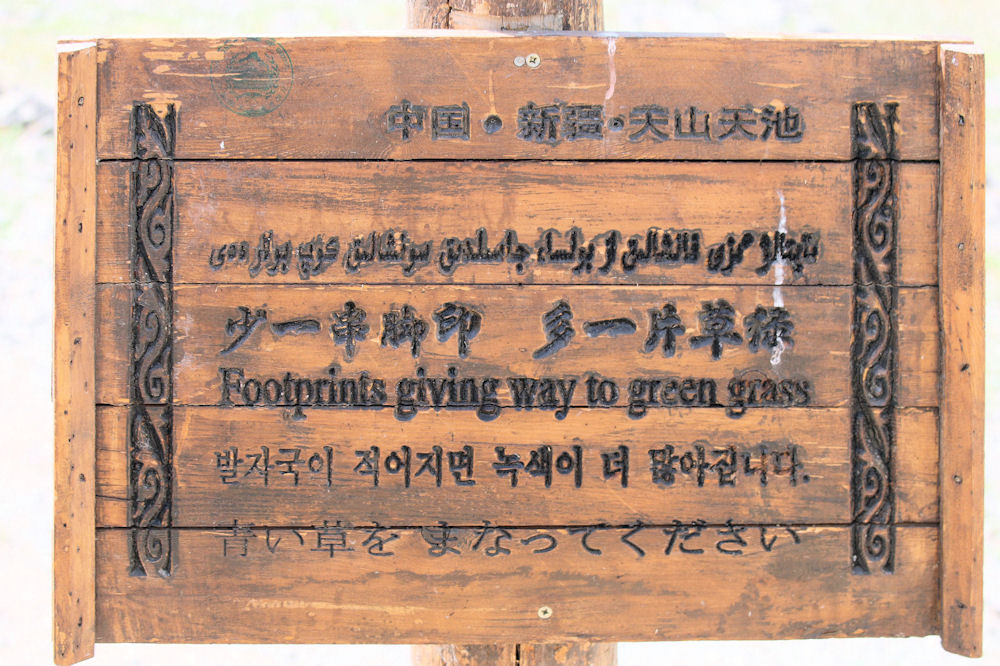 中国·新疆·天山天池
تاپتالۋ ٴىزى قانشالىق از بولسا، جاسىلدىق سونشالىق كوپ بولار ەدى
少一串脚印 多一片草绿
Footprints giving way to green grass
발자국이 적어지면 녹색이 더 많아집니다.
青い草を まなってください